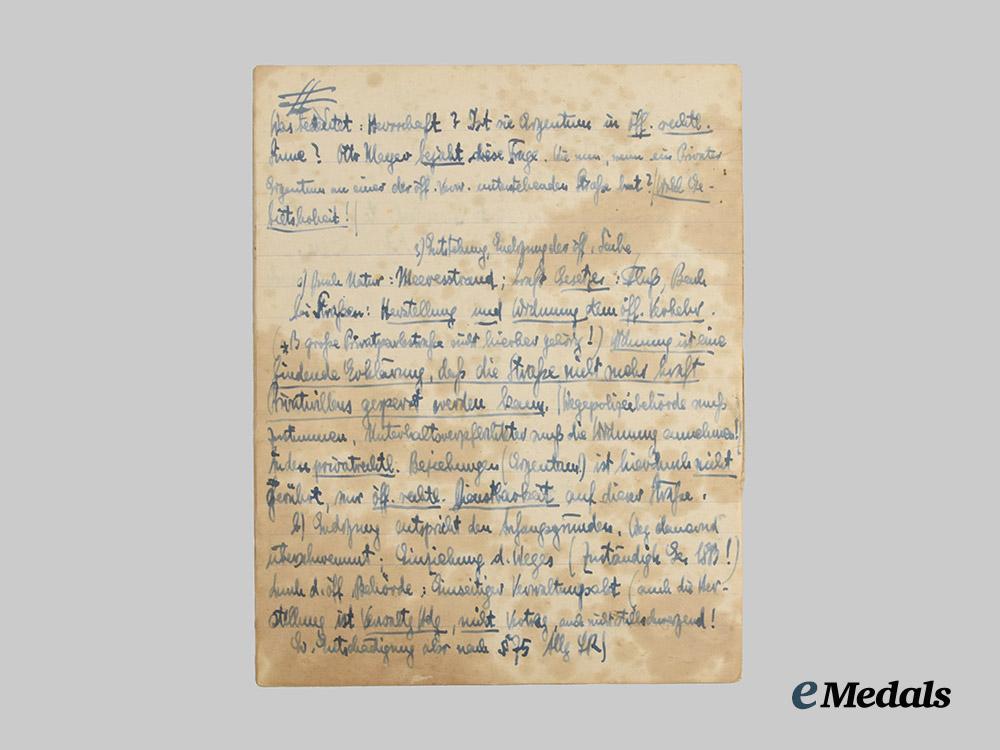 Was bedeutet: Herrschaft? Ist sie Eigentum in öff. rechtl.
Sinne? Otto Mayer bejaht diese Frage. Wie nun, wenn ein Privater
Eigentum an einer der öff. Verw. unterstehenden Straße hat? (Wohl Ge-
bietshoheit!)
3) Entstehung, Endigung der öff. Sache
a) Natur: Meeresstrand; kraft Gesetzes: Fluß, Bach
bei Straßen: Herstellung und Widmung dem öff. Verkehr.
(z.B. große Privatparkstraße nicht hierher gehörig!) Widmung ist eine
bindende Erklärung, daß die Straße nicht mehr kraft
Privatwillens gesperrt werden kann. (Wegepolizeibehörde muß
zustimmen, Unterhaltsverpflichteter muß die Widmung annehmen!
In den privatrechtl. Beziehungen (Eigentum) ist hierdurch nicht
gerührt, nur öff. rechtl. Dienstbarkeit auf dieser Straße.
b) Endigung entspricht den Anfangsgründen. Weg dauernd
überschwemmt; Einziehung d. Weges (Zuständigk. Ge 1883!)
durch d. öff Behörde; Einseitiger Verwaltungsakt (auch die Her-
stellung ist Verwaltg Hdlg, nicht Vertrag, auch nicht stillschweigend!
Entschädigung aber nach § 75 Allg LR)
eMedals